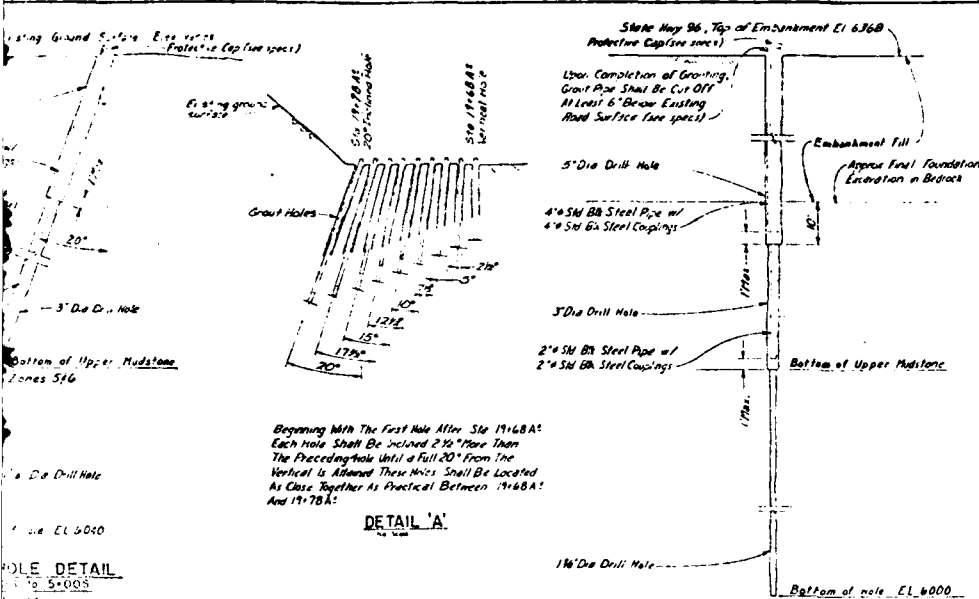 isting Ground Surface
Protective Cap (see specs)
20°
3" Dia Drill Hole
Bottom of Upper Mudstone
Zones 5+6
Dia Drill Hole
HOLE DETAIL
Existing ground
surface
Sta 19+78 A±
20° Inclined Hole
Sta 19+68 A±
Vertical Hole
Grout Holes
2½°
5°
7½
10°
12½
15°
17½°
20°
Beginning With The First Hole After Sta 19+68 A±
Each Hole Shall Be Inclined 2½° More Than
The Preceding Hole Until a Full 20° From The
Vertical Is Attained These Holes Shall Be Located
As Close Together As Practical Between 19+68 A±
And 19+78 A±
DETAIL 'A'
State Hwy 96, Top of Embankment El 6368
Protective Cap (see specs)
Upon Completion of Grouting,
Grout Pipe Shall Be Cut Off
At Least 6" Below Existing
Road Surface (see specs)
Embankment Fill
5" Dia Drill Hole
Approx Final Foundation
Excavation in Bedrock
4"ø Std Blk Steel Pipe w/
4"ø Std Blk Steel Couplings
10'
1'Max.
3" Dia Drill Hole
2"ø Std Blk Steel Pipe w/
2"ø Std Blk Steel Couplings
Bottom of Upper Mudstone
1'Max.
Dia Drill Hole
Bottom of hole EL 6000